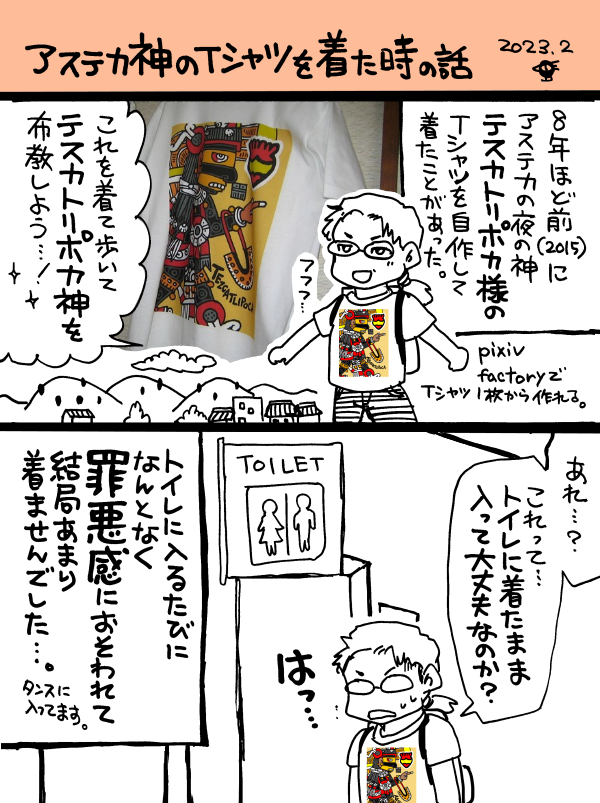 アステカ神のTシャツを着た時の話
2023.2
8年ほど前
(2015)に
アステカの夜の神
テスカトリポカ様の
Tシャツを自作して
着たことがあった。
pixiv
factoryで
Tシャツ1枚から作れる。
フフフ…
TEZCATLIPOCA
これを着て歩いて
テスカトリポカ神を
布教しよう…!
あれ…?
これって…
トイレに着たまま
入って大丈夫なのか?
はっ…
TOILET
トイレに入るたびに
なんとなく
罪悪感におそわれて
結局あまり
着ませんでした…。
タンスに
入ってます。